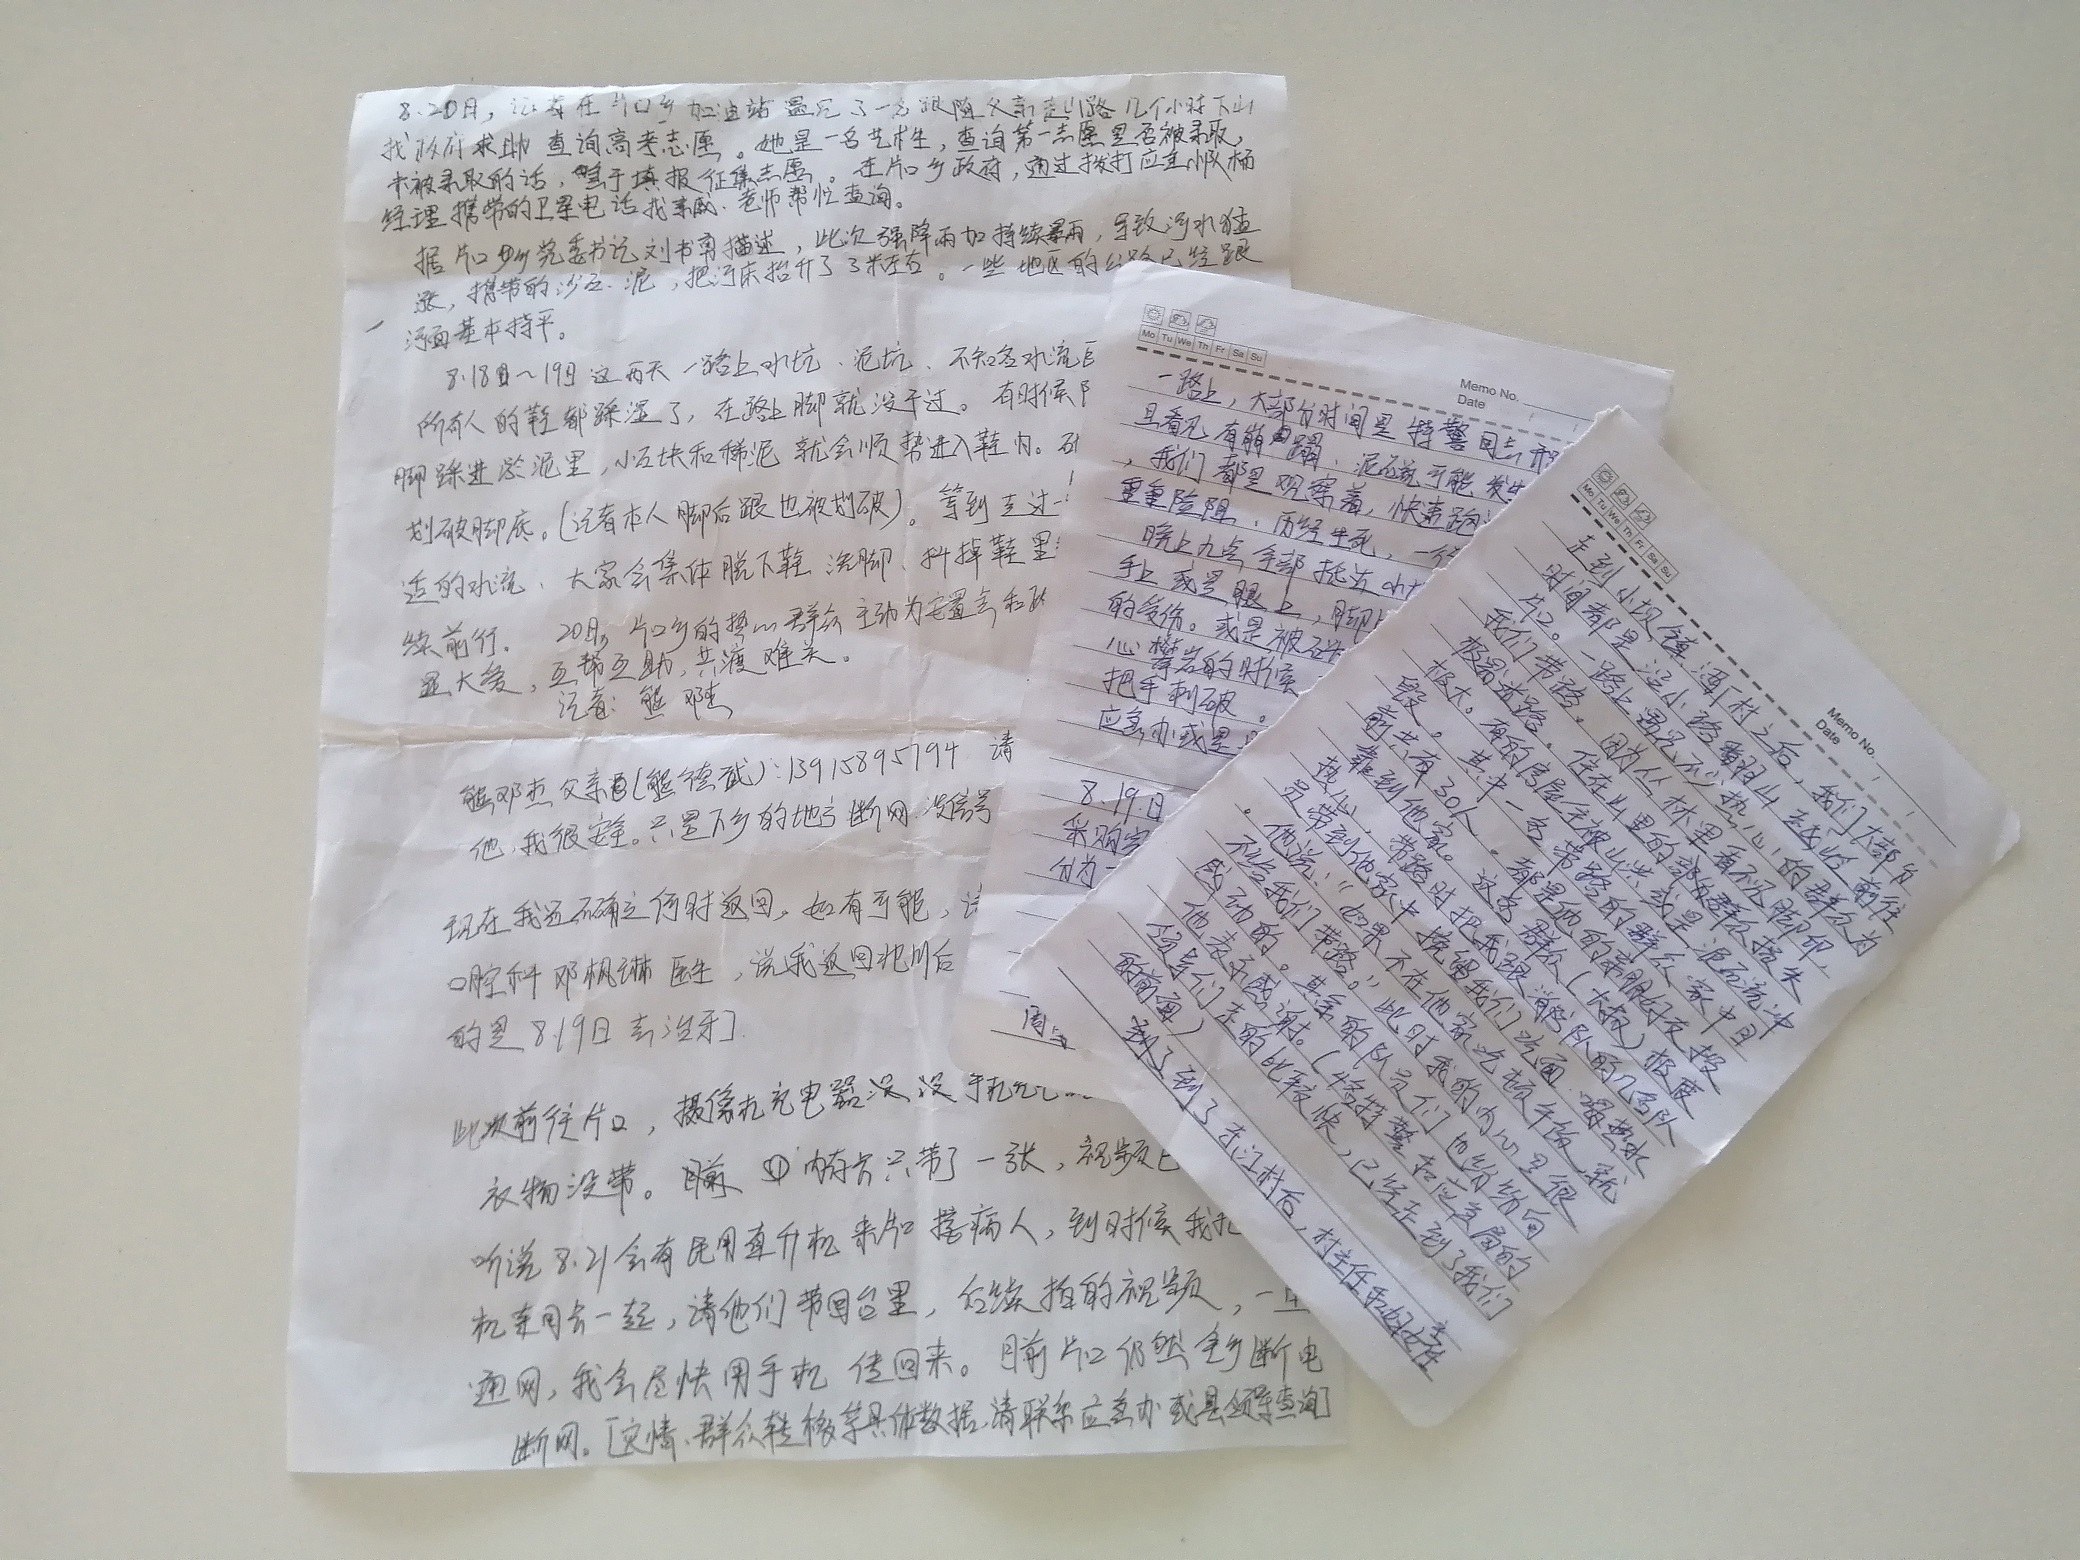 8.20日，记者在片口乡加油站遇见了一名跟随父亲走山路几个小时下山
找政府求助查询高考志愿。她是一名艺术生，查询第一志愿是否被录取，
未被录取的话，等于填报征集志愿。在片口乡政府，通过拨打应急小队杨
经理携带的卫星电话找亲戚、老师帮忙查询。
据片口乡党委书记刘书勇描述，此次强降雨加持续暴雨，导致河水猛
涨，携带的沙石、泥，把河床抬升了3米左右。一些地区的公路已经跟
河面基本持平。
8.18日～19日这两天一路上水坑、泥坑、不知名水流
所有人的鞋都踩湿了，在路上脚就没干过。有时候
脚踩进淤泥里，小石块和稀泥就会顺势进入鞋内。
划破脚底。(记者本人脚后跟也被划破)。等到走过一
适的水流、大家会集体脱下鞋、洗脚、抖掉鞋里
续前行。 20日，片口乡的热心群众主动为安置点和
显大爱，互帮互助，共渡难关。
记者：熊邓杰
熊邓杰父亲(熊德武)：13915895794 请
他，我很安全。只是下乡的地方断网、没信号
现在我还不确定何时返回，如有可能，请
口腔科邓枫琳医生，说我返回北川后
的是8.19日去治牙］
此次前往片口，摄像机充电器没、没手机充
衣物没带。目前 内存卡只带了一张，视频已
听说8.21会有民用直升机来片口接病人，到时候我把
机交同去一起，请他们带回台里，后续拍的视频，一旦
通网，我会尽快用手机传回来。目前片口仍然全乡断电
断网。［灾情、群众转移等具体数据，请联系应急办或县领导查询］
Memo No.
Date
Mo Tu We Th Fr Sa Su
一路上，大部分时间是特警同志开
且看见有崩塌、泥石流可能发生
，我们都是观察着，快速跑
重重险阻、历经生死，一
晚上九点全部抵达
手上或是腿上，脚
的受伤。或是被石
心攀岩的时候
把手刺破。
应急办或是
8.19.日
采购
分为一
Memo No.
Date
Mo Tu We Th Fr Sa Su
走到小坝镇酒厂村之后，我们大部分
时间都是沿小路翻山越岭前往
片口。一路上遇见不少热心的群众为
我们带路。因为从林里看不见脚印，
极需道路。住在山里的部分群众损失
极大。有的房屋全被山洪或是泥石流冲
毁。其中一名带路的群众家中目
前共有30人。都是他的亲朋好友投
靠到他家。这名群众(大叔)极度
热心，带路时把我跟消防队的几名队
员带到他家中挽留我们吃面、喝热水
。他说："如果不在他家吃顿午饭，就
不给我们带路。"此时我的内心是很
感动的。其余的队员们也纷纷向
他表示感谢。(特警和应急局的
领导们走的比较快，已经走到了我们
的前面)
到了东江村后，村主任和妇女主任